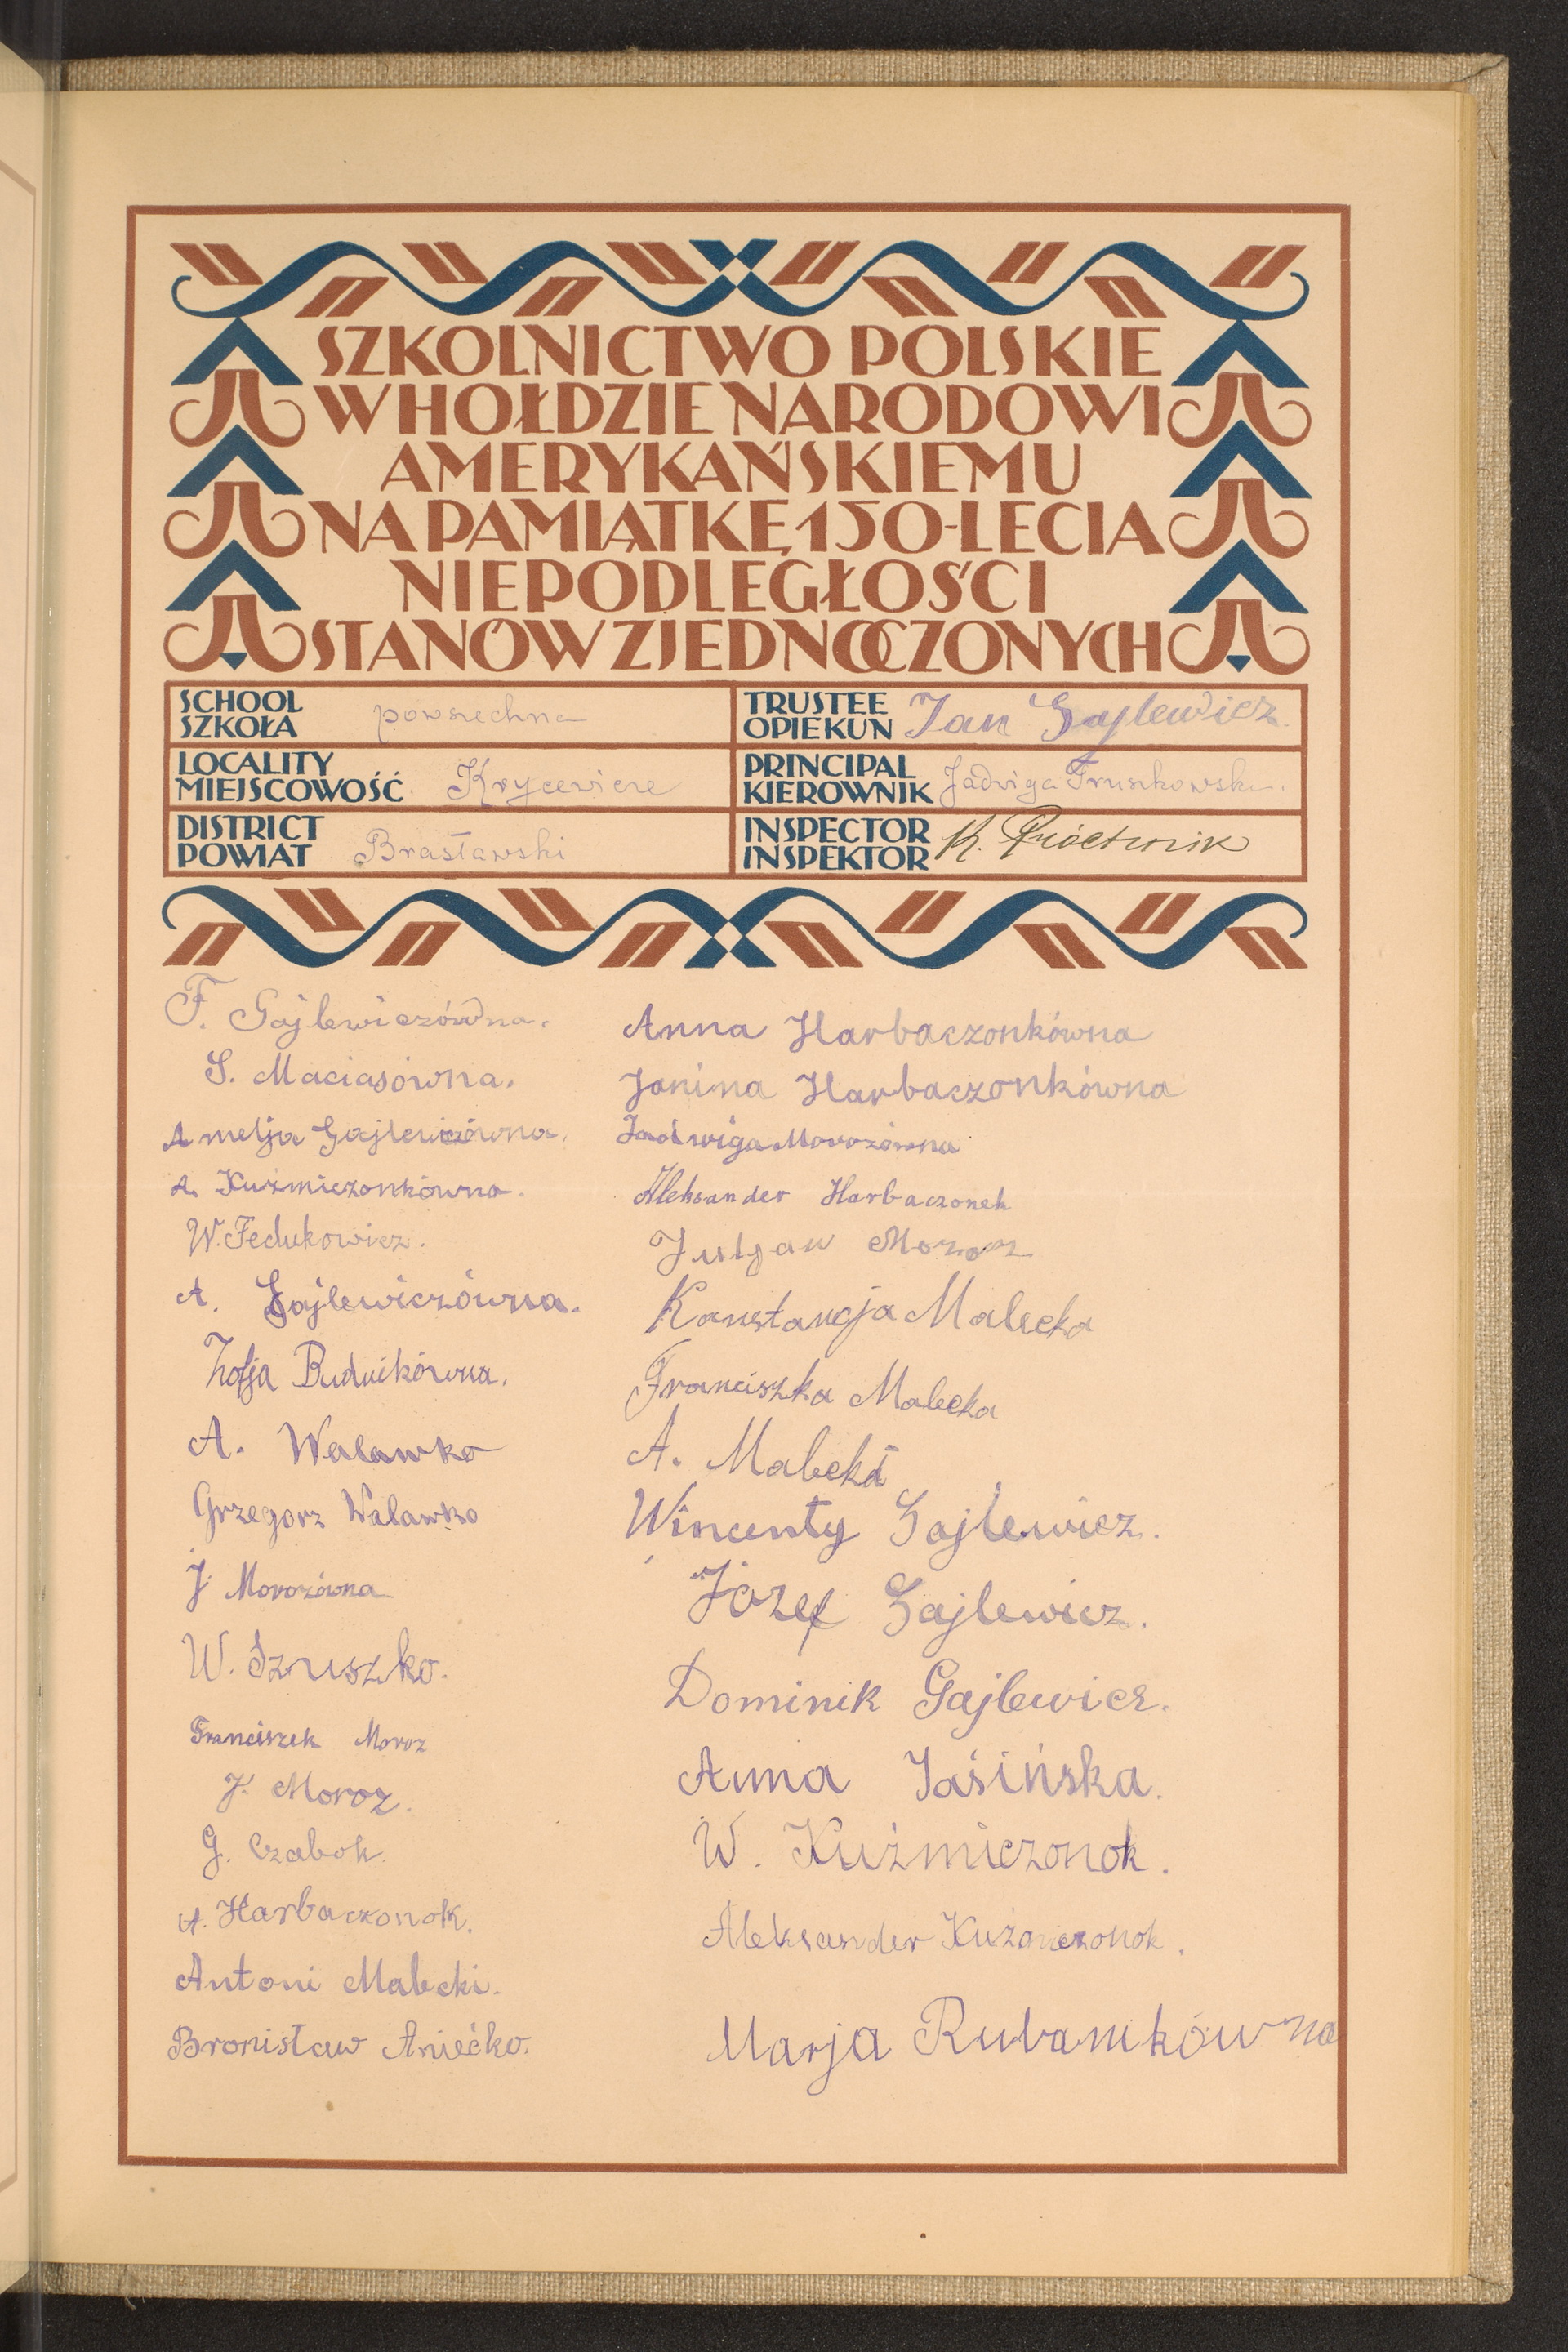 SZKOLNICTWO POLSKIE
W HOŁDZIE NARODOWI
AMERYKAŃSKIEMU
NA PAMIĄTKĘ 150-LECIA
NIEPODLEGŁOŚCI
STANÓW ZJEDNOCZONYCH
SCHOOL
SZKOŁA powszechna
TRUSTEE
OPIEKUN Jan Gajlewicz
LOCALITY
MIEJSCOWOŚĆ Krycewicze
PRINCIPAL
KIEROWNIK Jadwiga Truszkowska.
DISTRICT
POWIAT Brasławski
INSPECTOR
INSPEKTOR K.
F. Gajlewiczówna.
S. Maciasówna.
Amelja Gajlewiczówna.
A. Kuźmiczonkówna.
W. Fedukowicz.
A. Gajlewiczówna.
Zofja Budnikówna.
A. Walawko
Grzegorz Walawko
J. Morozówna
W. Szuszko.
Franciszek Moroz
J. Moroz.
G. Czabok.
A. Harbaczonok.
Antoni Malecki.
Bronisław Aniećko.
Anna Harbaczonkówna
Janina Harbaczonkówna
Jadwiga Morozówna
Aleksander Harbaczonek
Juljan Moroz
Kanstancja Malecka
Franciszka Malecka
A. Malecka
Wincenty Gajlewicz.
Józef Gajlewicz.
Dominik Gajlewicz.
Anna Jasińska.
W. Kuźmiczonok.
Aleksander Kuźmiczonok.
Marja Rubanikówna